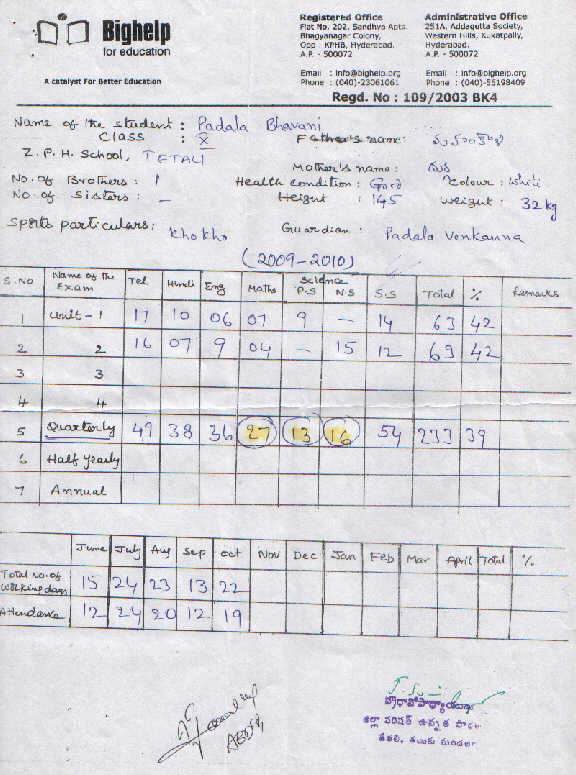 Bighelp
for education
A catalyst For Better Education
Registered Office
Flat No. 202, Sandhya Apts.
Bhagyanagar Colony,
Opp. KPHB, Hyderabad.
A.P. - 500072
Email : info@bighelp.org
Phone : (040)-23061061
Administrative Office
251A, Addagutta Society,
Western Hills, Kukatpally,
Hyderabad.
A.P. - 500072
Email : info@bighelp.org
Phone : (040)-55198409
Regd. No : 109/2003 BK4
Name of the student : Padala Bhavani
Class : X Father's name:
Z.P.H. School, TETALI Mother's name :
No. of Brothers : 1 Health Condition : Good Colour : White
No. of Sisters : - Height : 145 Weight : 32 kg
Sports particulars: Khokho Guardian : Padala Venkanna
(2009-2010)
S.NO Name of the Exam Tel Hindi Eng Maths Science P.S N.S S.S Total % Remarks
1 Unit - 1 17 10 06 07 9 - 14 63 42
2 2 16 07 9 04 - 15 12 63 42
3 3
4 4
5 Quarterly 49 38 36 27 13 16 54 233 39
6 Half Yearly
7 Annual
June July Aug Sep Oct Nov Dec Jan Feb Mar April Total %
Total no. of working days 15 24 23 13 22
Attendance 12 24 20 12 19
ప్రధానోపాధ్యాయులు
జిల్లా పరిషత్ ఉన్నత పాఠ
తేతలి, తణుకు మండలం